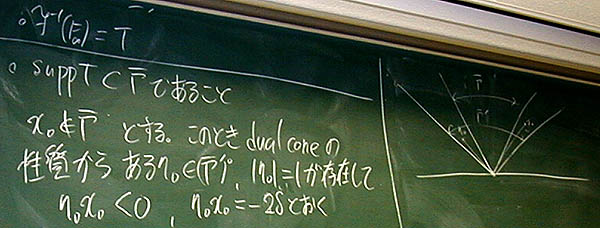 ◦ 𝓕⁻¹(F̂ₐ) = T
◦ supp T ⊂ Γ̄ であること
x₀ ∉ Γ̄ とする。このとき dual cone の
性質から ある η₀ ∈ (Γ̄)°, |η₀|=1 が存在して
η₀x₀ < 0, η₀x₀ = -2δ とおく
Γ̄